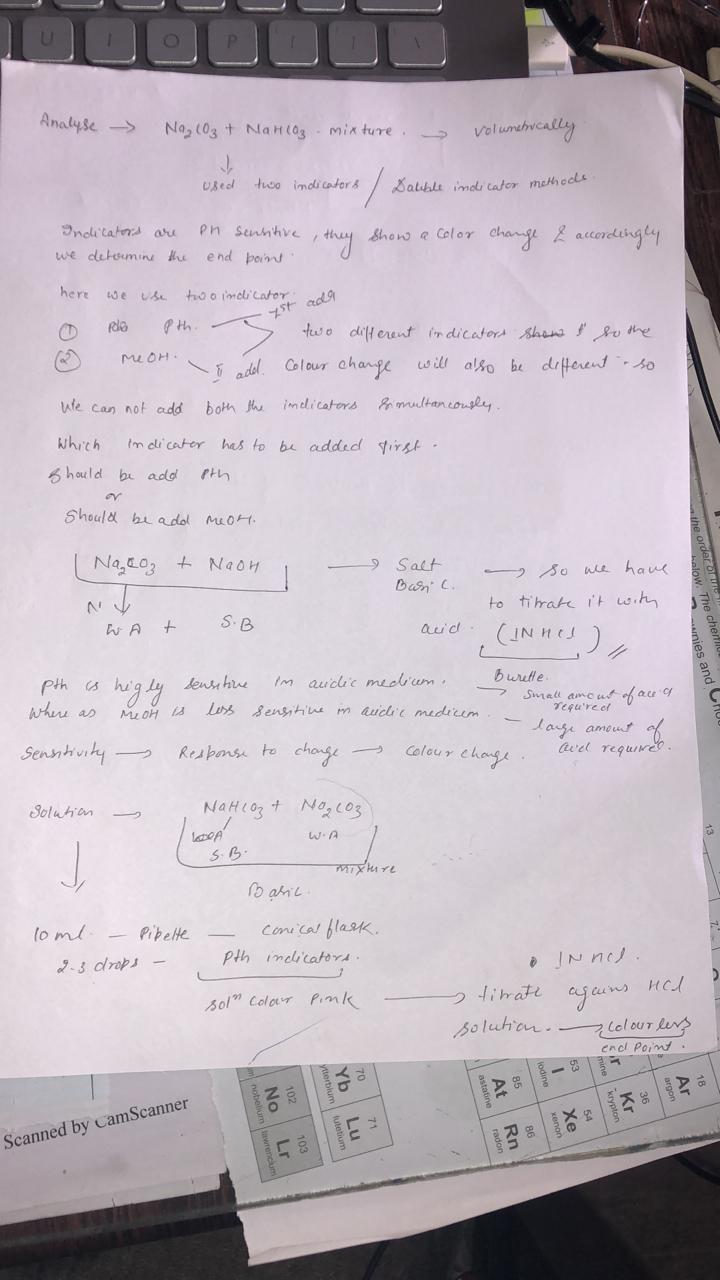 U I O P [ ] \
Analyse → Na2CO3 + NaHCO3 mixture. → Volumetrically
↓
used two indicators / Double indicator methods.
Indicators are PH Sensitive, they show a color change & accordingly
we determine the end point.
here we use two indicator.
1st add
① Pth. two different indicators so the
② MeOH. II add. Colour change will also be different. so
We can not add both the indicators Simultaneously.
Which indicator has to be added first.
Should be add Pth
or
Should be add MeOH.
Na2CO3 + NaOH → Salt → so we have
Basic. to titrate it with
W.A + S.B acid. (1N HCl)
Burette.
Pth is higly sensitive in acidic medium. → Small amount of acid required
Where as MeOH is less sensitive in acidic medium. – large amount of
acid required.
Sensitivity → Response to change → Colour change.
Solution → NaHCO3 + Na2CO3
W.A
S.B.
mixture
Basic.
10 ml. – Pibette – Conical flask.
2-3 drops – Pth indicators. 1N HCl.
soln Colour Pink → titrate agains HCl
solution. → Colourless
end point.
Scanned by CamScanner
102 No nobelium
103 Lr lawrencium
70 Yb ytterbium
71 Lu lutetium
85 At astatine
86 Rn radon
53 I iodine
54 Xe xenon
36 Kr krypton
18 Ar argon
13
the order of the
below. The chemic
wnies and